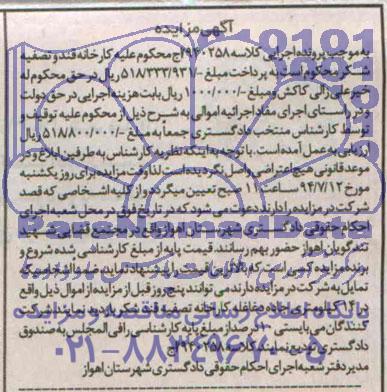 آگهی مزایده
به موجب پرونده اجرایی کلاسه ۹۴۰۲۵۸ج محکوم علیه کارخانه قند و تصفیه
شکر محکوم است به پرداخت مبلغ ۵۱۸/۳۳۳/۹۳۷ ریال در حق محکوم له
خیرعلی زالی کاکش و مبلغ ۱/۰۰۰/۰۰۰ ریال بابت هزینه اجرایی در حق دولت
و در راستای اجرای مفاد اجرائیه اموالی به شرح ذیل از محکوم علیه توقیف و
توسط کارشناس منتخب دادگستری جمعا به مبلغ ۵۱۸/۸۰۰/۰۰۰ ریال
ارزیابی به عمل آمده است. با توجه به اینکه نظریه کارشناس به طرفین ابلاغ و در
موعد قانونی هیچ اعتراضی واصل نگردیده است لذا وقت مزایده برای روز یکشنبه
مورخ ۹۴/۷/۱۲ ساعت ۱۱ صبح تعیین میگردد و از کلیه اشخاصی که قصد
شرکت در مزایده را دارند دعوت می شود که در تاریخ فوق در محل شعبه اجرای
احکام حقوقی دادگستری شهرستان اهواز واقع در مجتمع قضایی شهید
تندگویان اهواز حضور بهم رسانند. قیمت پایه از مبلغ کارشناسی شده شروع و
برنده مزایده کسی است که بالاترین قیمت را پیشنهاد نماید ضمنا اشخاصی که
تمایل به شرکت در مزایده دارند می توانند پنج روز قبل از مزایده از اموال ذیل واقع
در ۱۴ کیلومتری جاده کارخانه تصفیه قند شکر بازدید نمایند شرکت
کنندگان می بایستی ۱۰ درصد از مبلغ پایه کارشناسی را فی المجلس به صندوق
دادگستری تودیع نمایند کلاسه ۹۴۰۲۵۸ج
مدیر دفتر شعبه اجرای احکام حقوقی دادگستری شهرستان اهواز